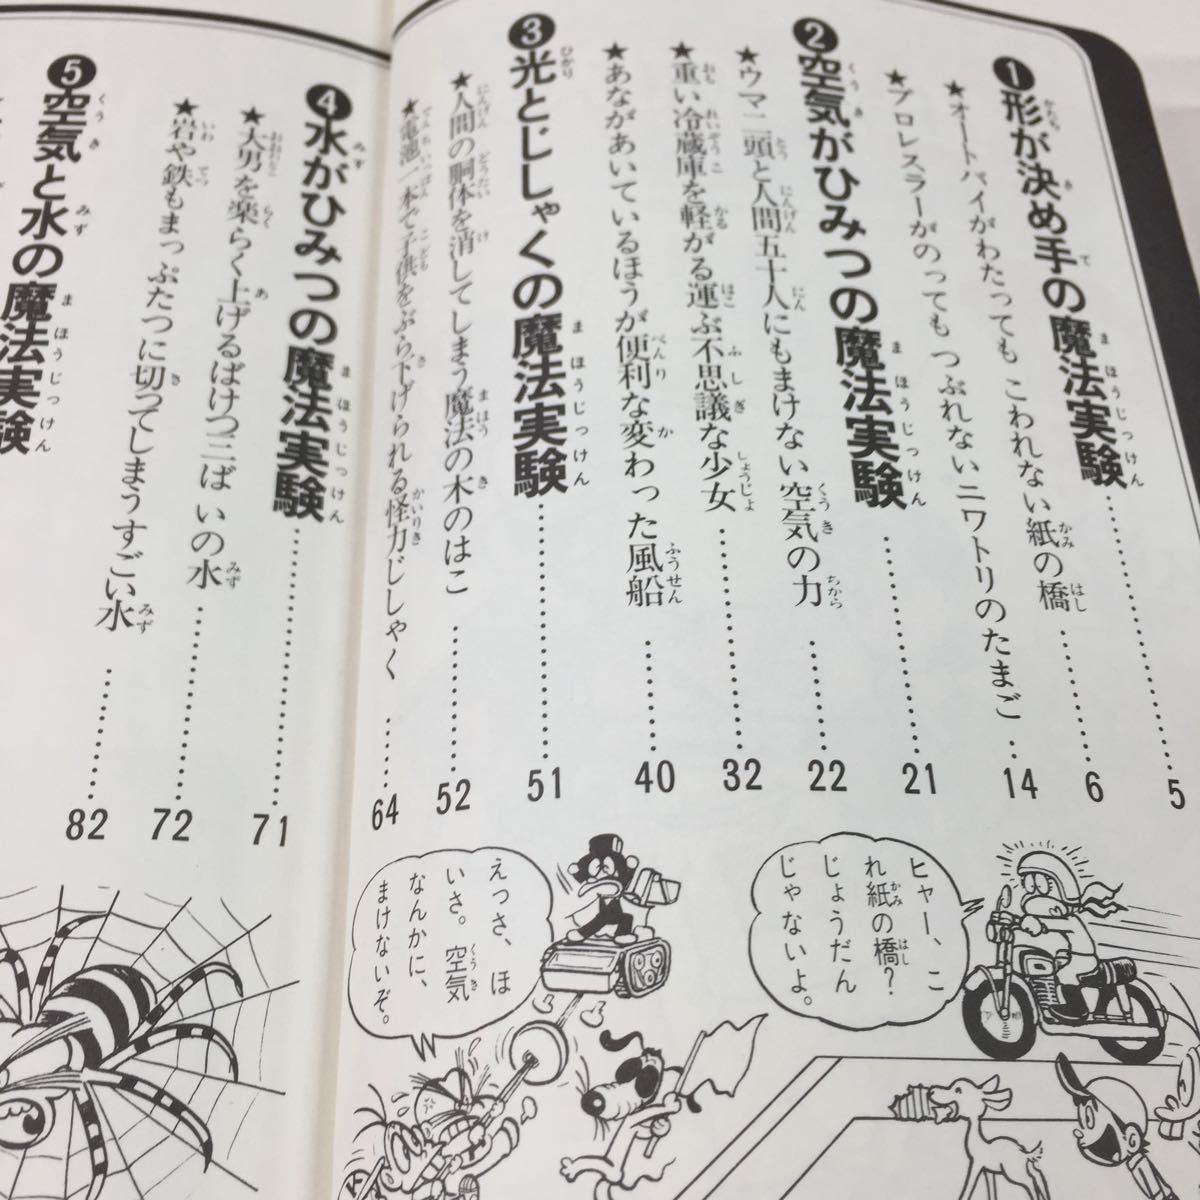 ❶形が決め手の魔法実験……5
★オートバイがわたっても こわれない紙の橋……6
★プロレスラーがのっても つぶれないニワトリのたまご…14
❷空気がひみつの魔法実験……21
★ウマ二頭と人間五十人にもまけない空気の力……22
★重い冷蔵庫を軽がる運ぶ不思議な少女……32
★あながあいているほうが便利な変わった風船……40
❸光とじしゃくの魔法実験……51
★人間の胴体を消してしまう魔法の木のはこ……52
★電池一本で子供をぶら下げられる怪力じしゃく……64
❹水がひみつの魔法実験……71
★大男を楽らく上げるばけつ三ばいの水……72
★岩や鉄もまっぷたつに切ってしまうすごい水……82
❺空気と水の魔法実験
ヒャー、こ
れ紙の橋？
じょうだん
じゃないよ。
えっさ、ほ
いさ。空気
なんかに、
まけないぞ。